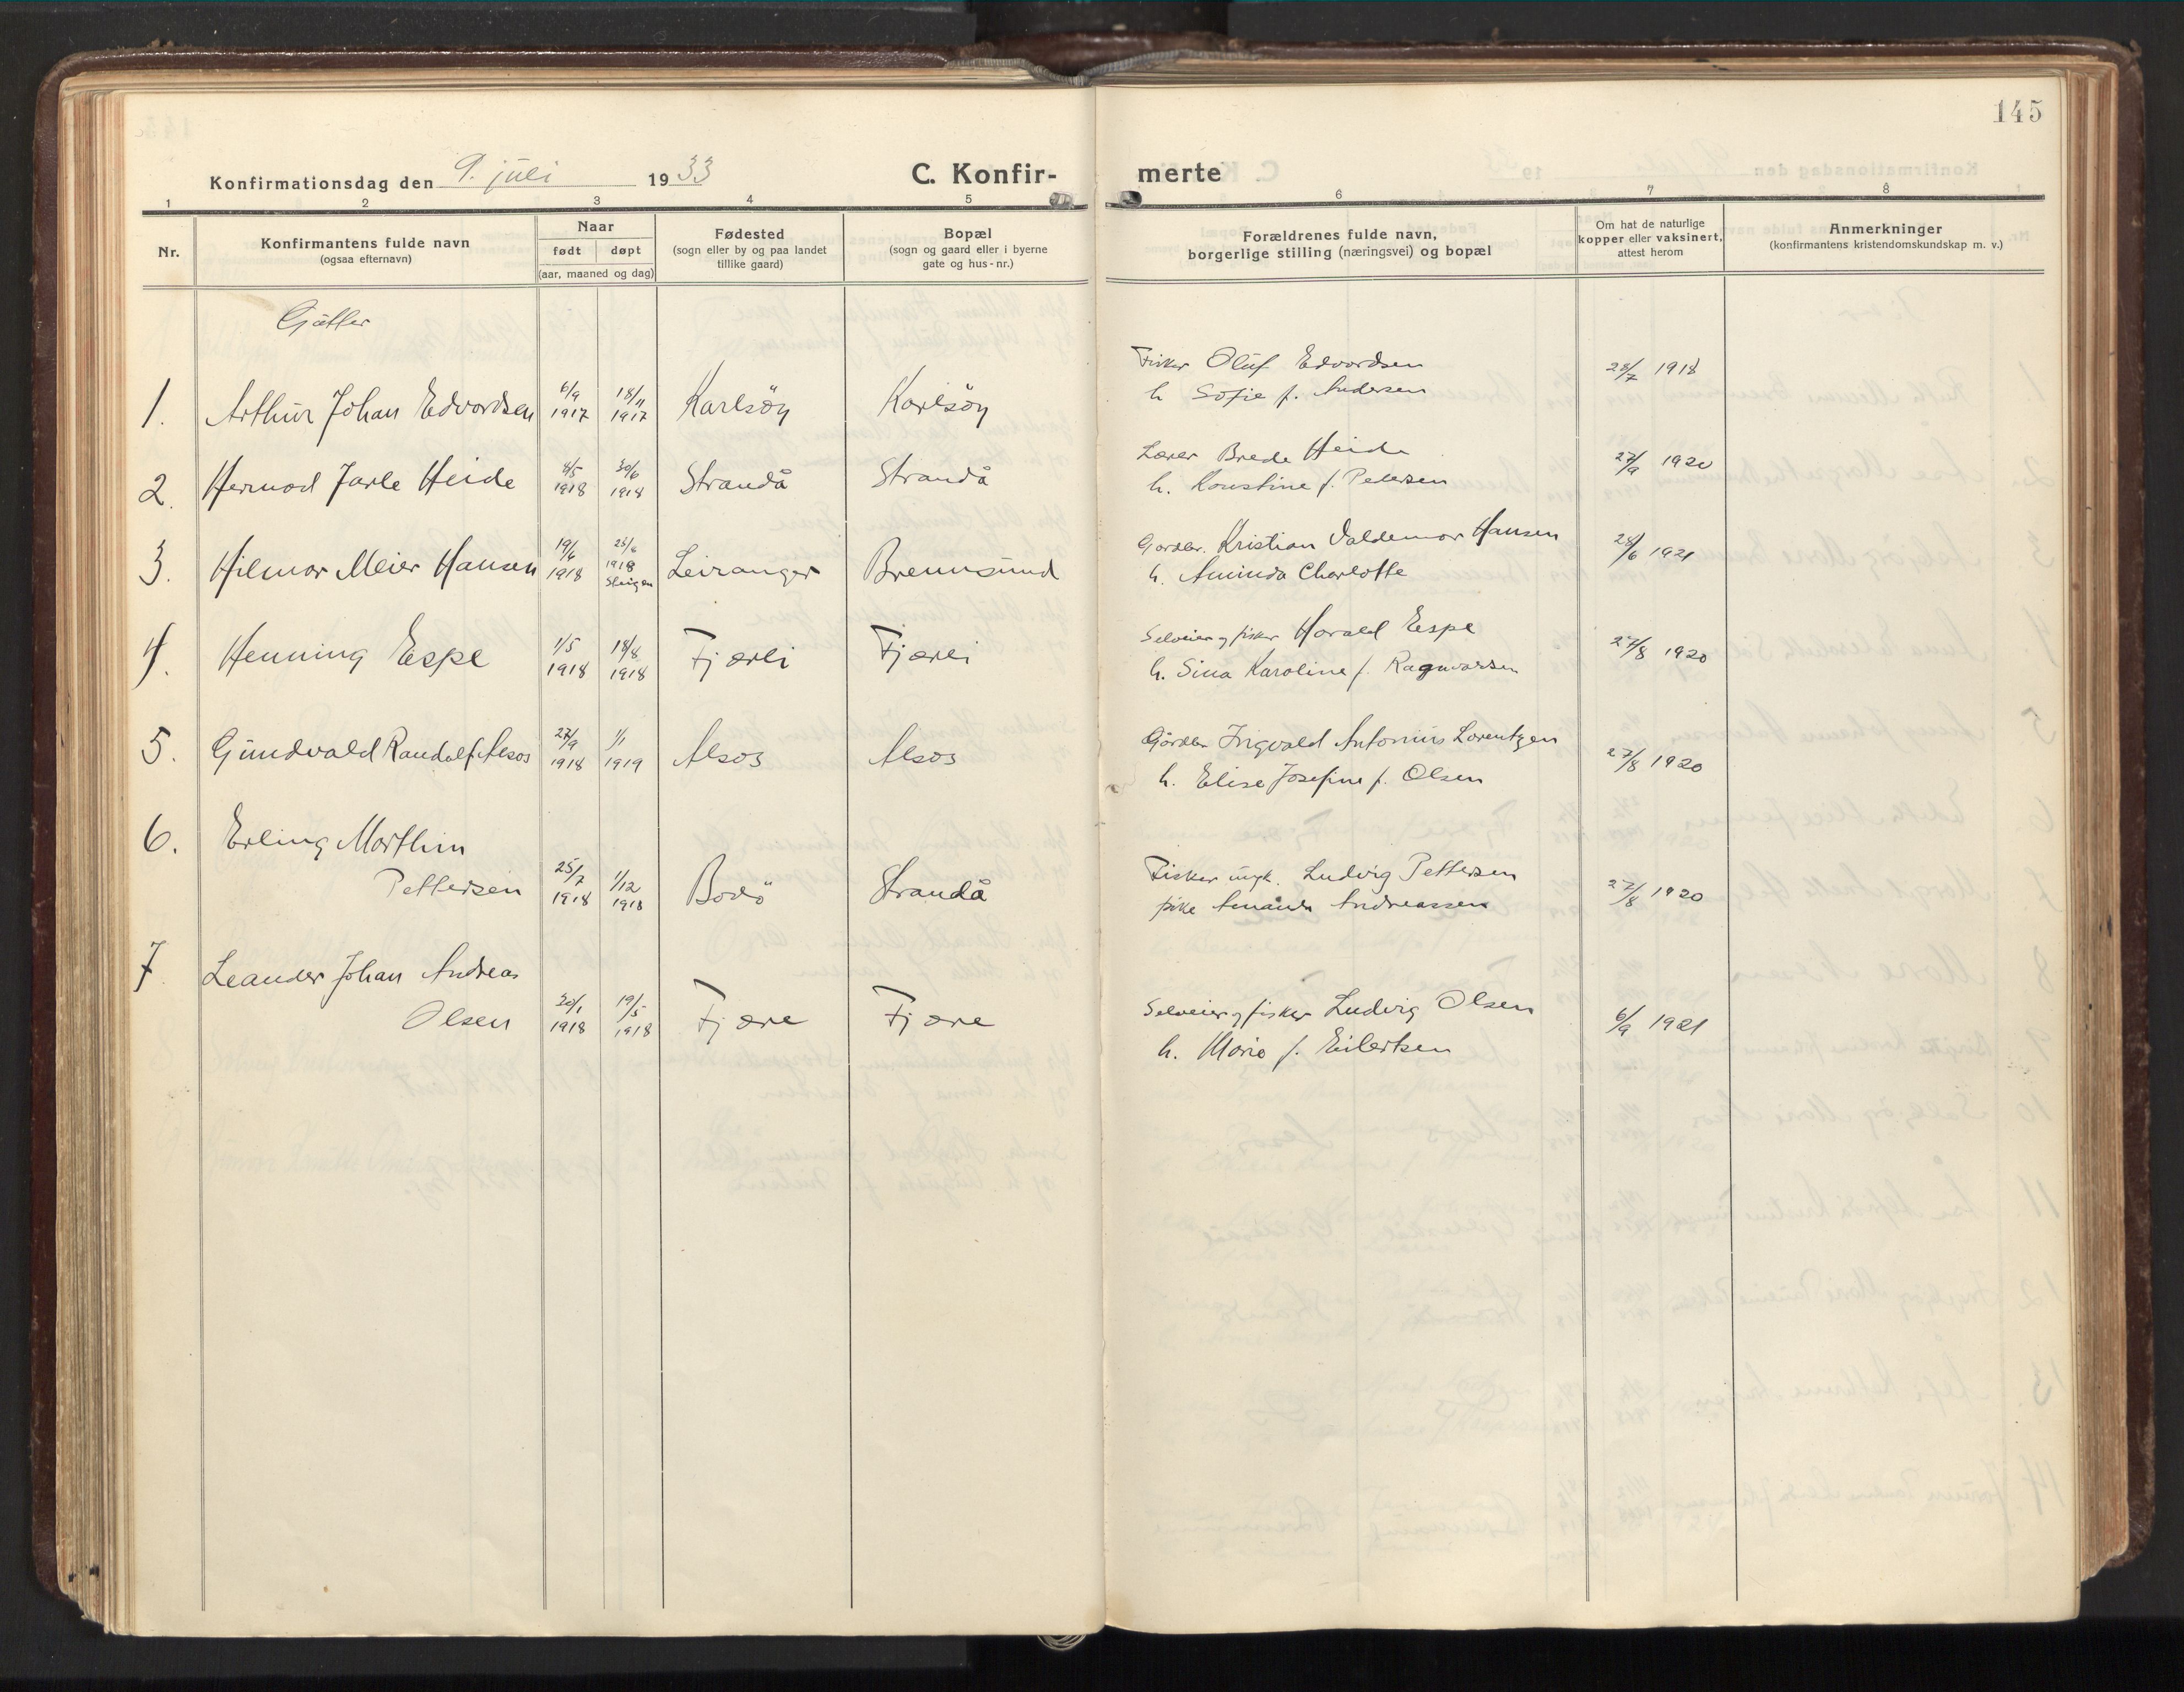 145
Konfirmationsdag den 9. juli 1933
C. Konfir-
merte
1 2 3 4 5 6 7 8
Nr.
Konfirmantens fulde navn
(ogsaa efternavn)
Naar
født døpt
(aar, maaned og dag)
Fødested
(sogn eller by og paa landet
tillike gaard)
Bopæl
(sogn og gaard eller i byerne
gate og hus-nr.)
Forældrenes fulde navn,
borgerlige stilling (næringsvei) og bopæl
Om hat de naturlige
kopper eller vaksinert,
attest herom
Anmerkninger
(konfirmantens kristendomskundskap m. v.)
Gutter
1. Arthur Johan Edvardsen 6/9 1917 18/11 1917 Karlsöy Karlsöy
Fisker Oluf Edvardsen
h. Sofie f. Andersen
28/7 1918
2. Hermod Jarle Heide 4/5 1918 30/6 1918 Strandå Strandå
Lærer Brede Heide
h. Konstine f. Petersen
27/9 1920
3. Hilmar Meier Hansen 19/6 1918 1918 Steigen Leiranger Brennsund
Gardbr. Kristian Valdemar Hansen
h. Aminda Charlotte
28/6 1921
4. Henning Espe 1/5 1918 18/8 1918 Fjærli Fjærli
Selveier og fisker Harald Espe
h. Sina Karoline f. Ragnvardsen
27/8 1920
5. Gundvald Randolf Alsos 27/9 1918 1/1 1919 Alsos Alsos
Gårdbr. Ingvald Antonius Lorentzen
h. Elise Josefine f. Olsen
27/8 1920
6. Erling Marthin
Pettersen 25/7 1918 1/12 1918 Bodö Strandå
Fisker ungk. Ludvig Pettersen
pike Amanda Andreassen
27/8 1920
7. Leander Johan Andreas
Olsen 30/1 1918 19/5 1918 Fjære Fjære
Selveier og fisker Ludvig Olsen
h. Marie f. Eilertsen
6/9 1921